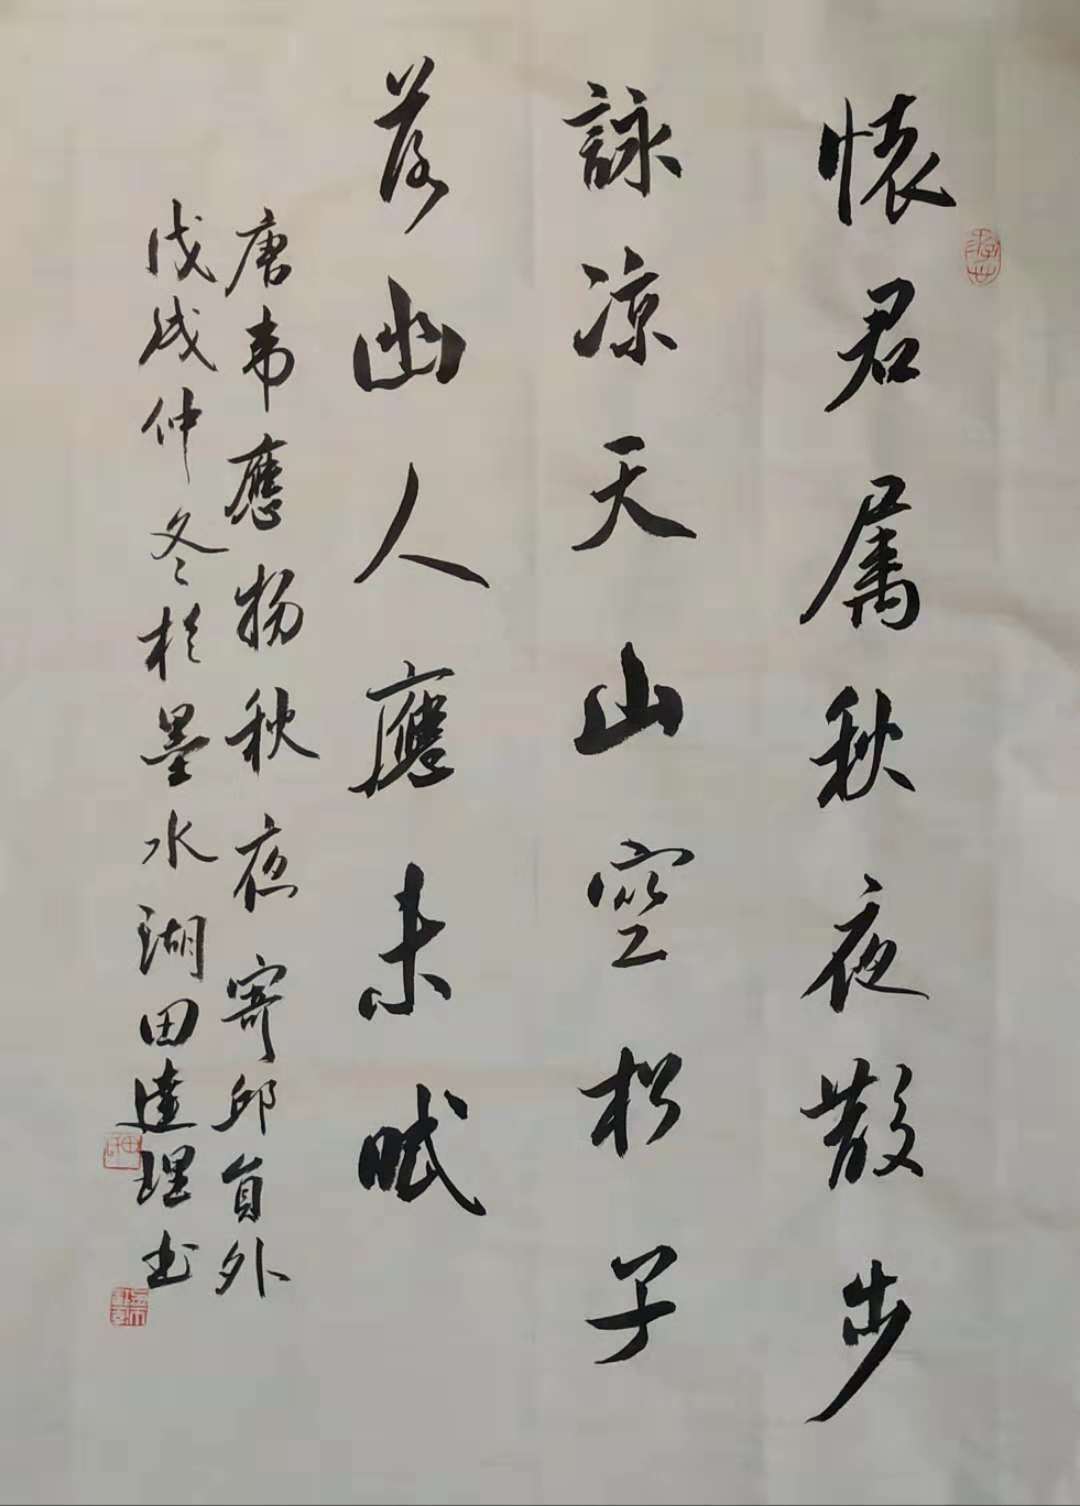 懷君属秋夜散步
詠凉天山空松子
落幽人應未眠
唐韋應物秋夜寄邱員外
戊戌仲冬於墨水湖田達理书